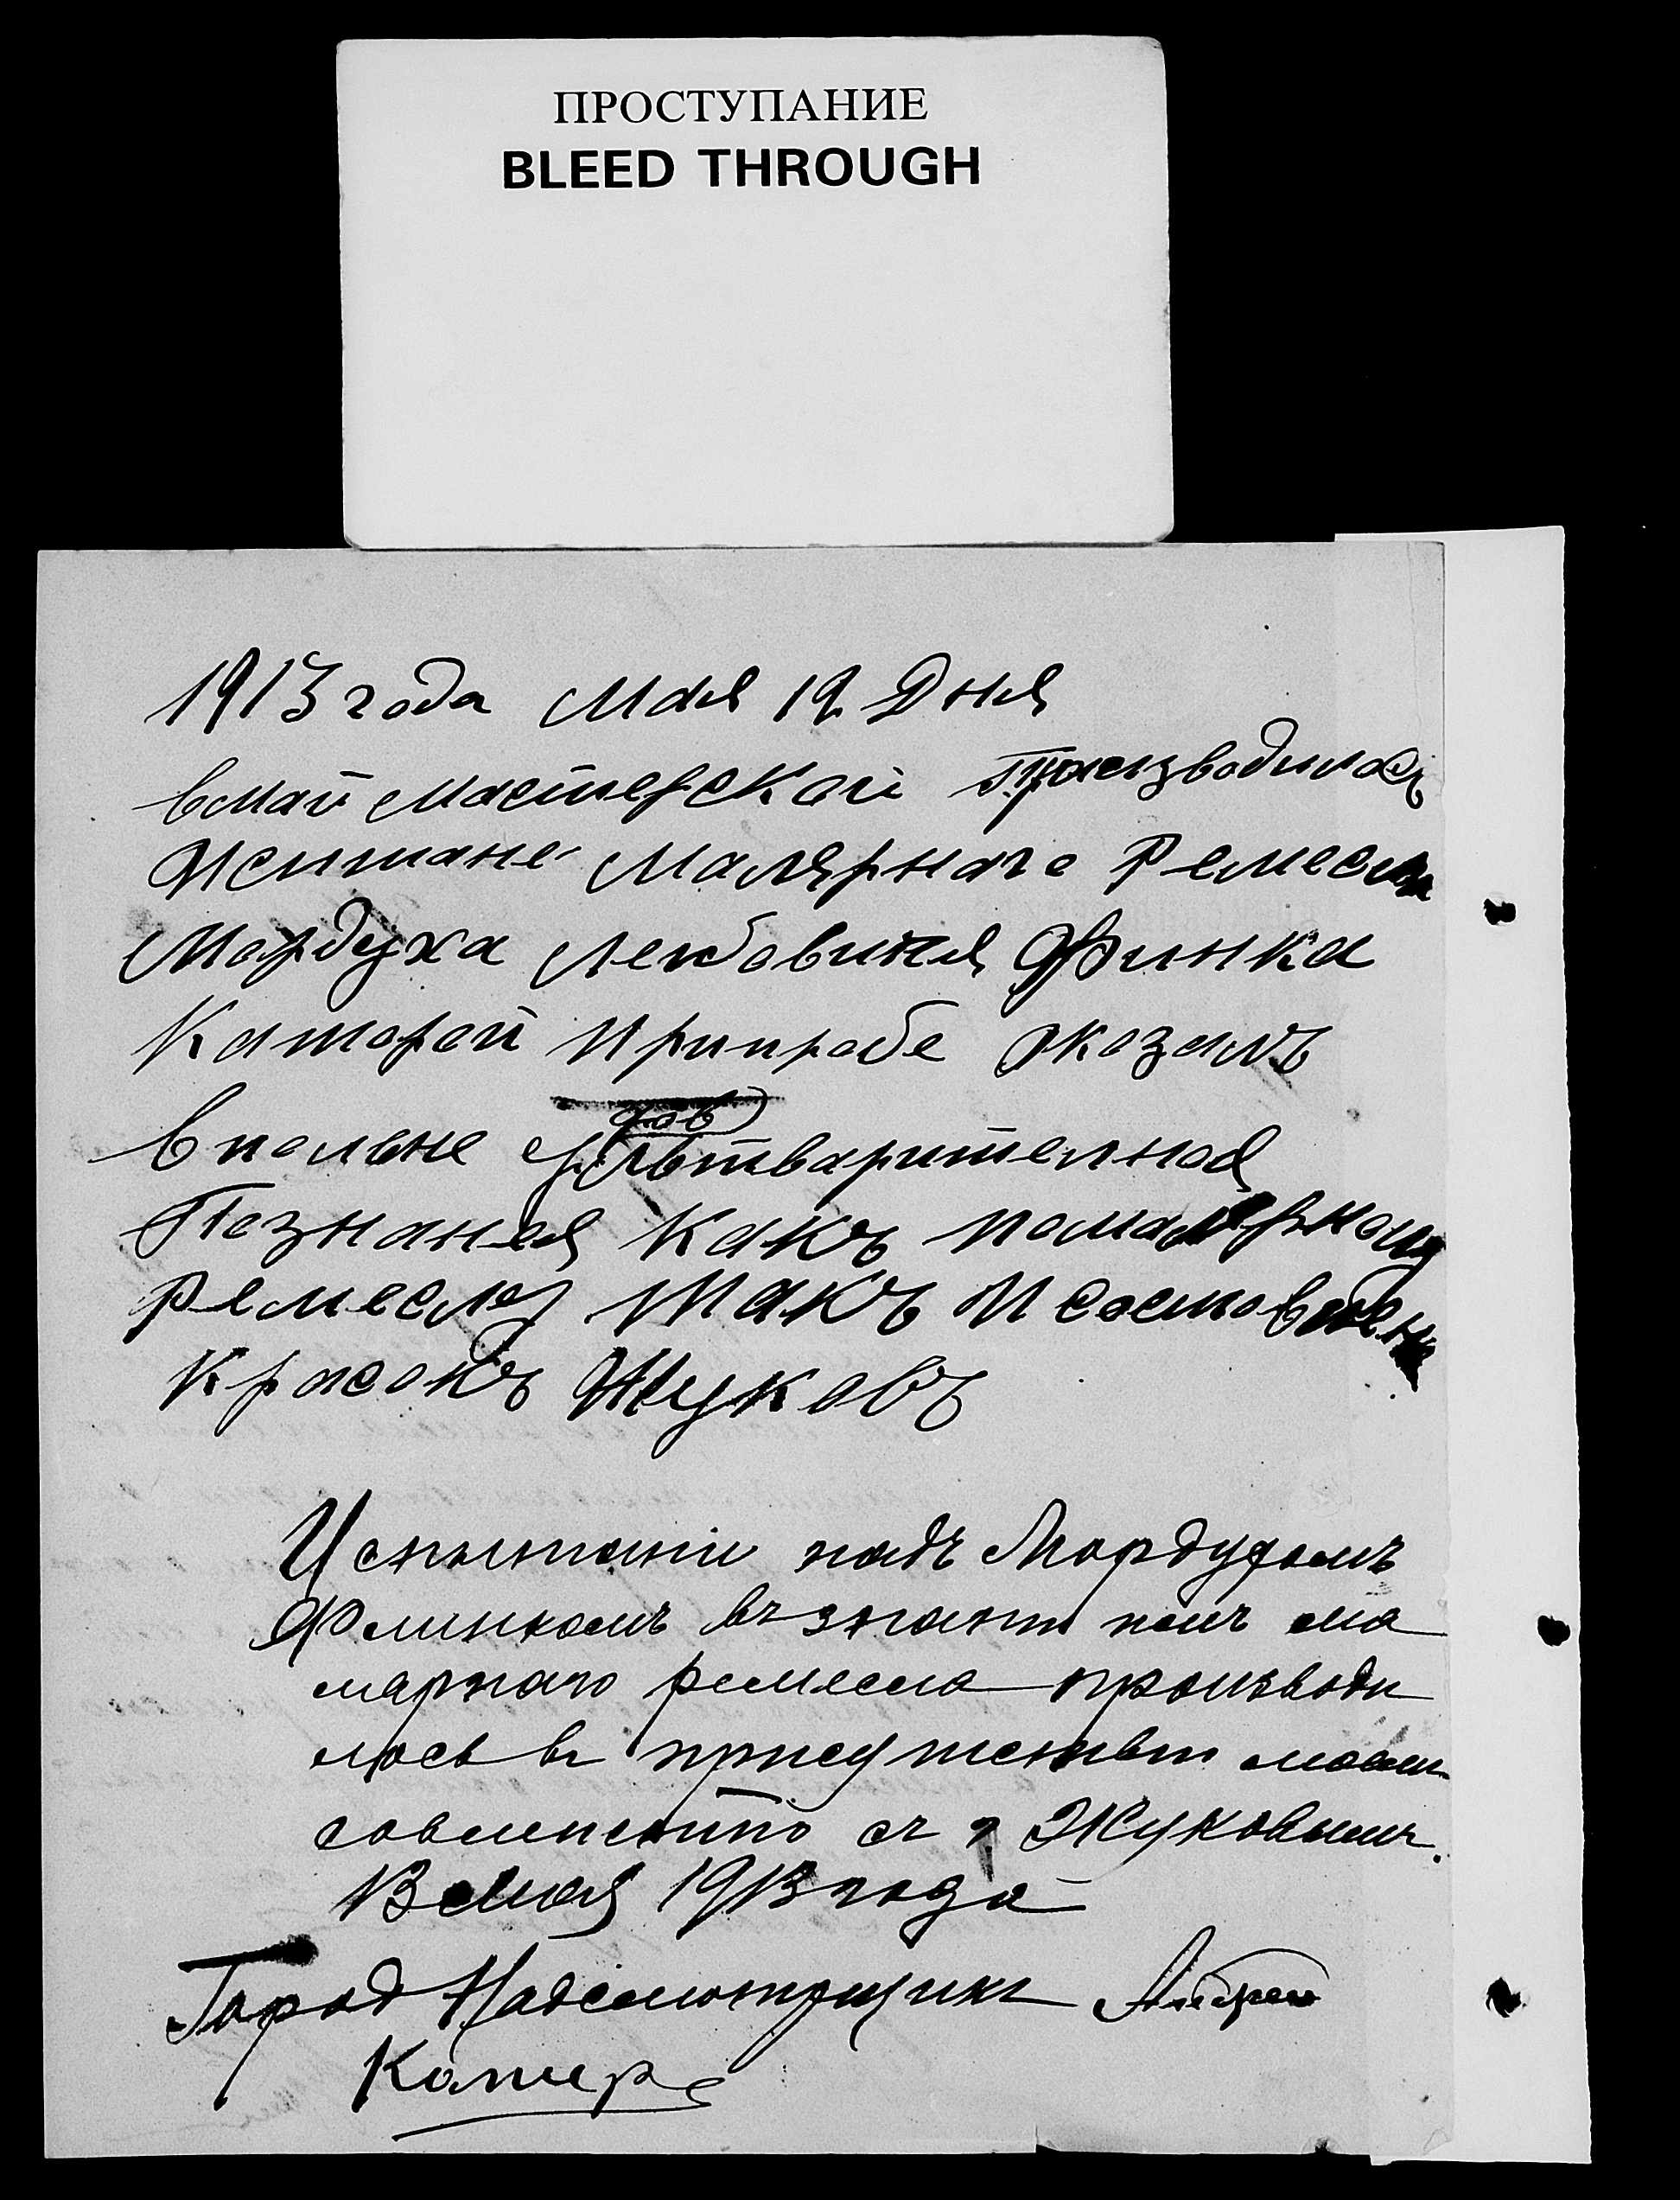 ПРОСТУПАНИЕ
BLEED THROUGH
1913 года Мая 19 Дня
вмай Мастерской Произвадилась
Испитане Малярнаго Ремесла
Мордуха Лейбовича Финка
Каторой Припробе оказалъ
вполене удовлътварителная
Познания какъ помалярному
Ремеслу такъ и состовлени
Красокъ Жуковъ
Испытаніи надъ Мордухомъ
Финкомъ въ знаніи имъ ма
лярнаго ремесла производи
лось въ присутствіи моемъ
совместно съ г Жуковымъ.
Мая 1913 года
Город Надсмотрщикъ